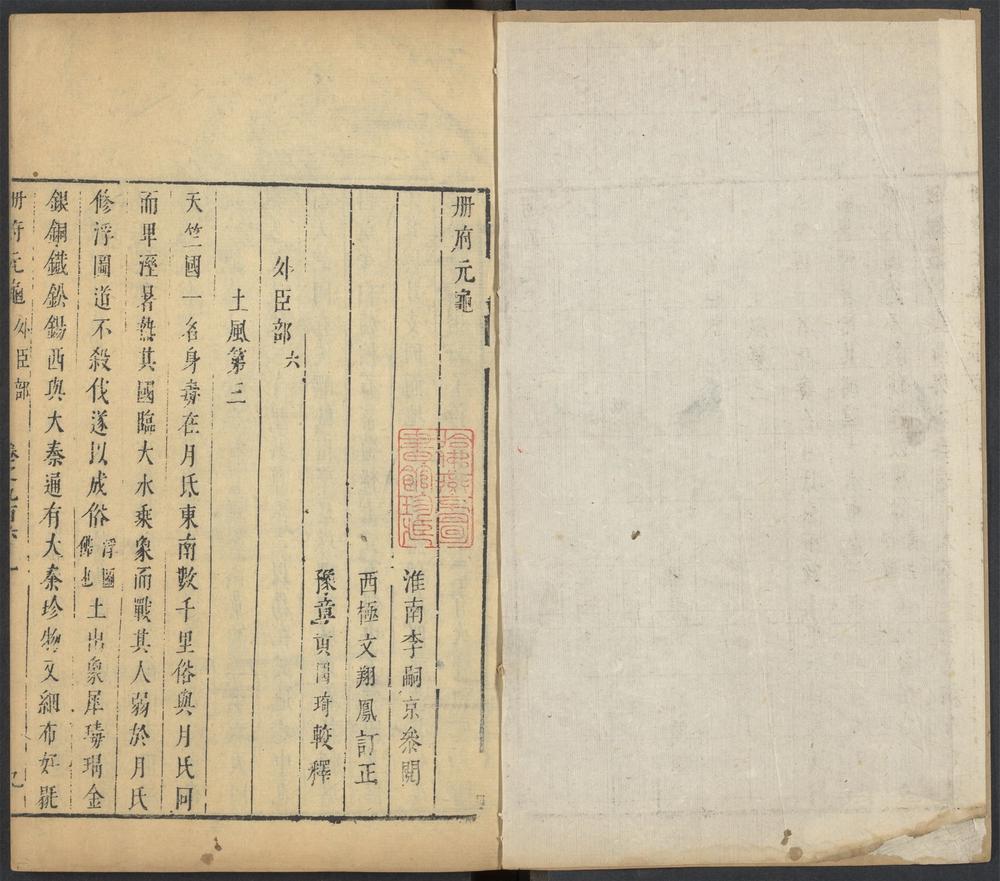 冊府元龜
淮南李嗣京叅閱
西極文翔鳳訂正
豫章黃國琦較釋
外臣部 六
土風第三
天竺國一名身毒在月氏東南數千里俗與月氏同
而卑溼暑熱其國臨大水乘象而戰其人弱於月氏
修浮圖道不殺伐遂以成俗 浮圖佛也 土出象犀瑇瑁金
銀銅鐵鉛錫西與大秦通有大秦珍物又細布好毾
冊府元龜 外臣部
哈佛燕京圖書館珍藏